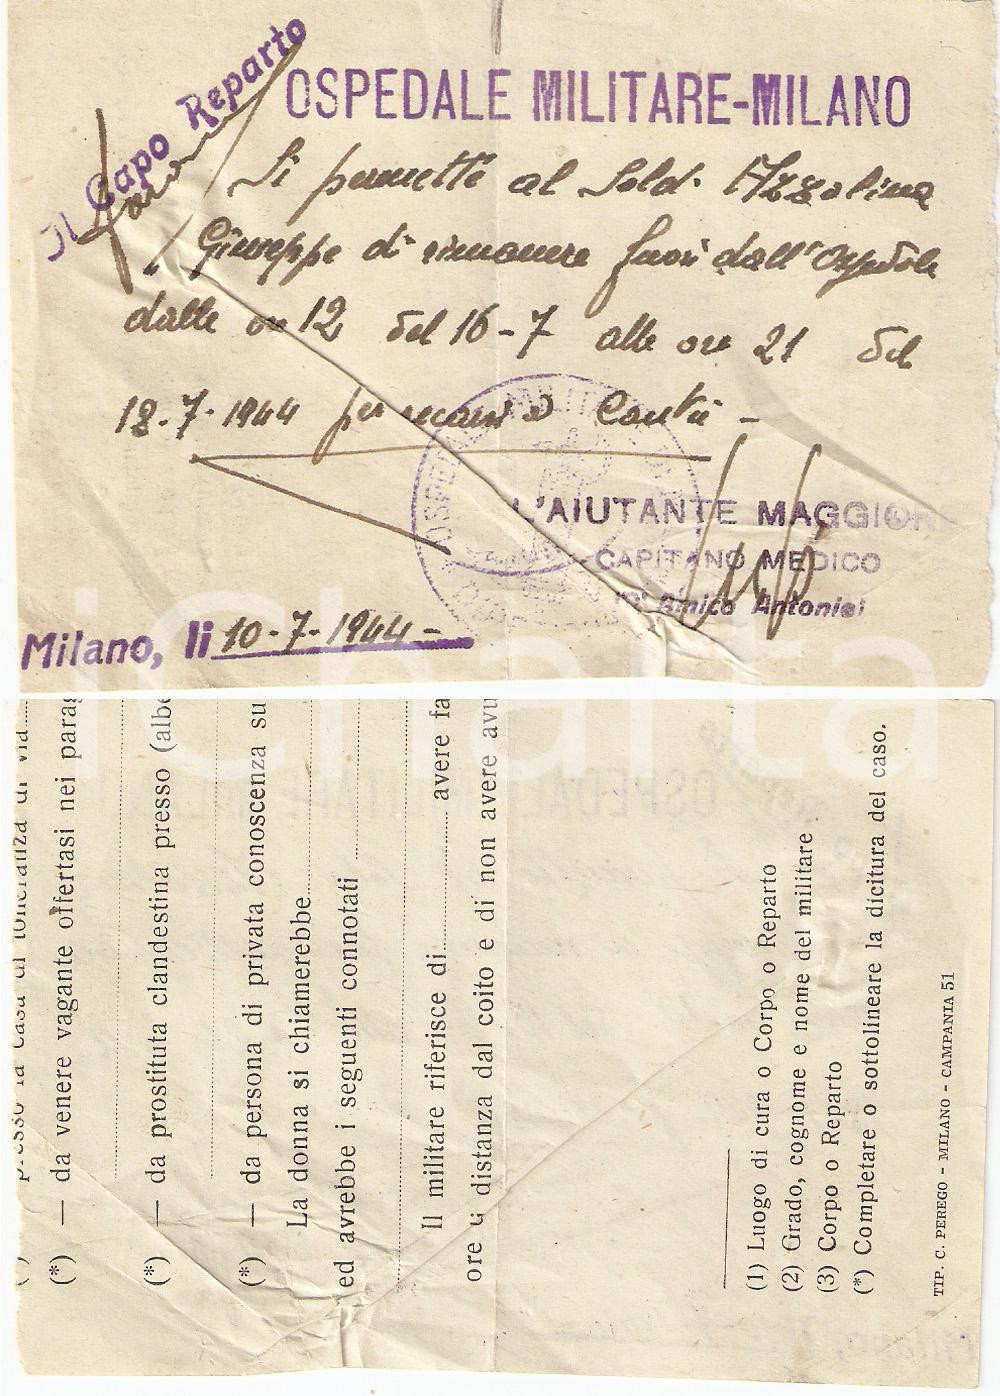 Il Capo Reparto
OSPEDALE MILITARE-MILANO
Si permette al Sold. Azzolina
Giuseppe di rimanere fuori dall'Ospedale
dalle ore 12 del 16-7 alle ore 21 del
18-7-1944 per recarsi a Cantù -
L'AIUTANTE MAGGIOR
CAPITANO MEDICO
Antonini
Milano, li 10-7-1944-
presso la casa di tolleranza di via
(*) — da venere vagante offertasi nei parag
(*) — da prostituta clandestina presso (albe
(*) — da persona di privata conoscenza su
La donna si chiamerebbe
ed avrebbe i seguenti connotati
Il militare riferisce di avere fa
ore di distanza dal coito e di non avere avu
(1) Luogo di cura o Corpo o Reparto
(2) Grado, cognome e nome del militare
(3) Corpo o Reparto
(*) Completare o sottolineare la dicitura del caso.
TIP. C. PEREGO - MILANO - CAMPANIA 51